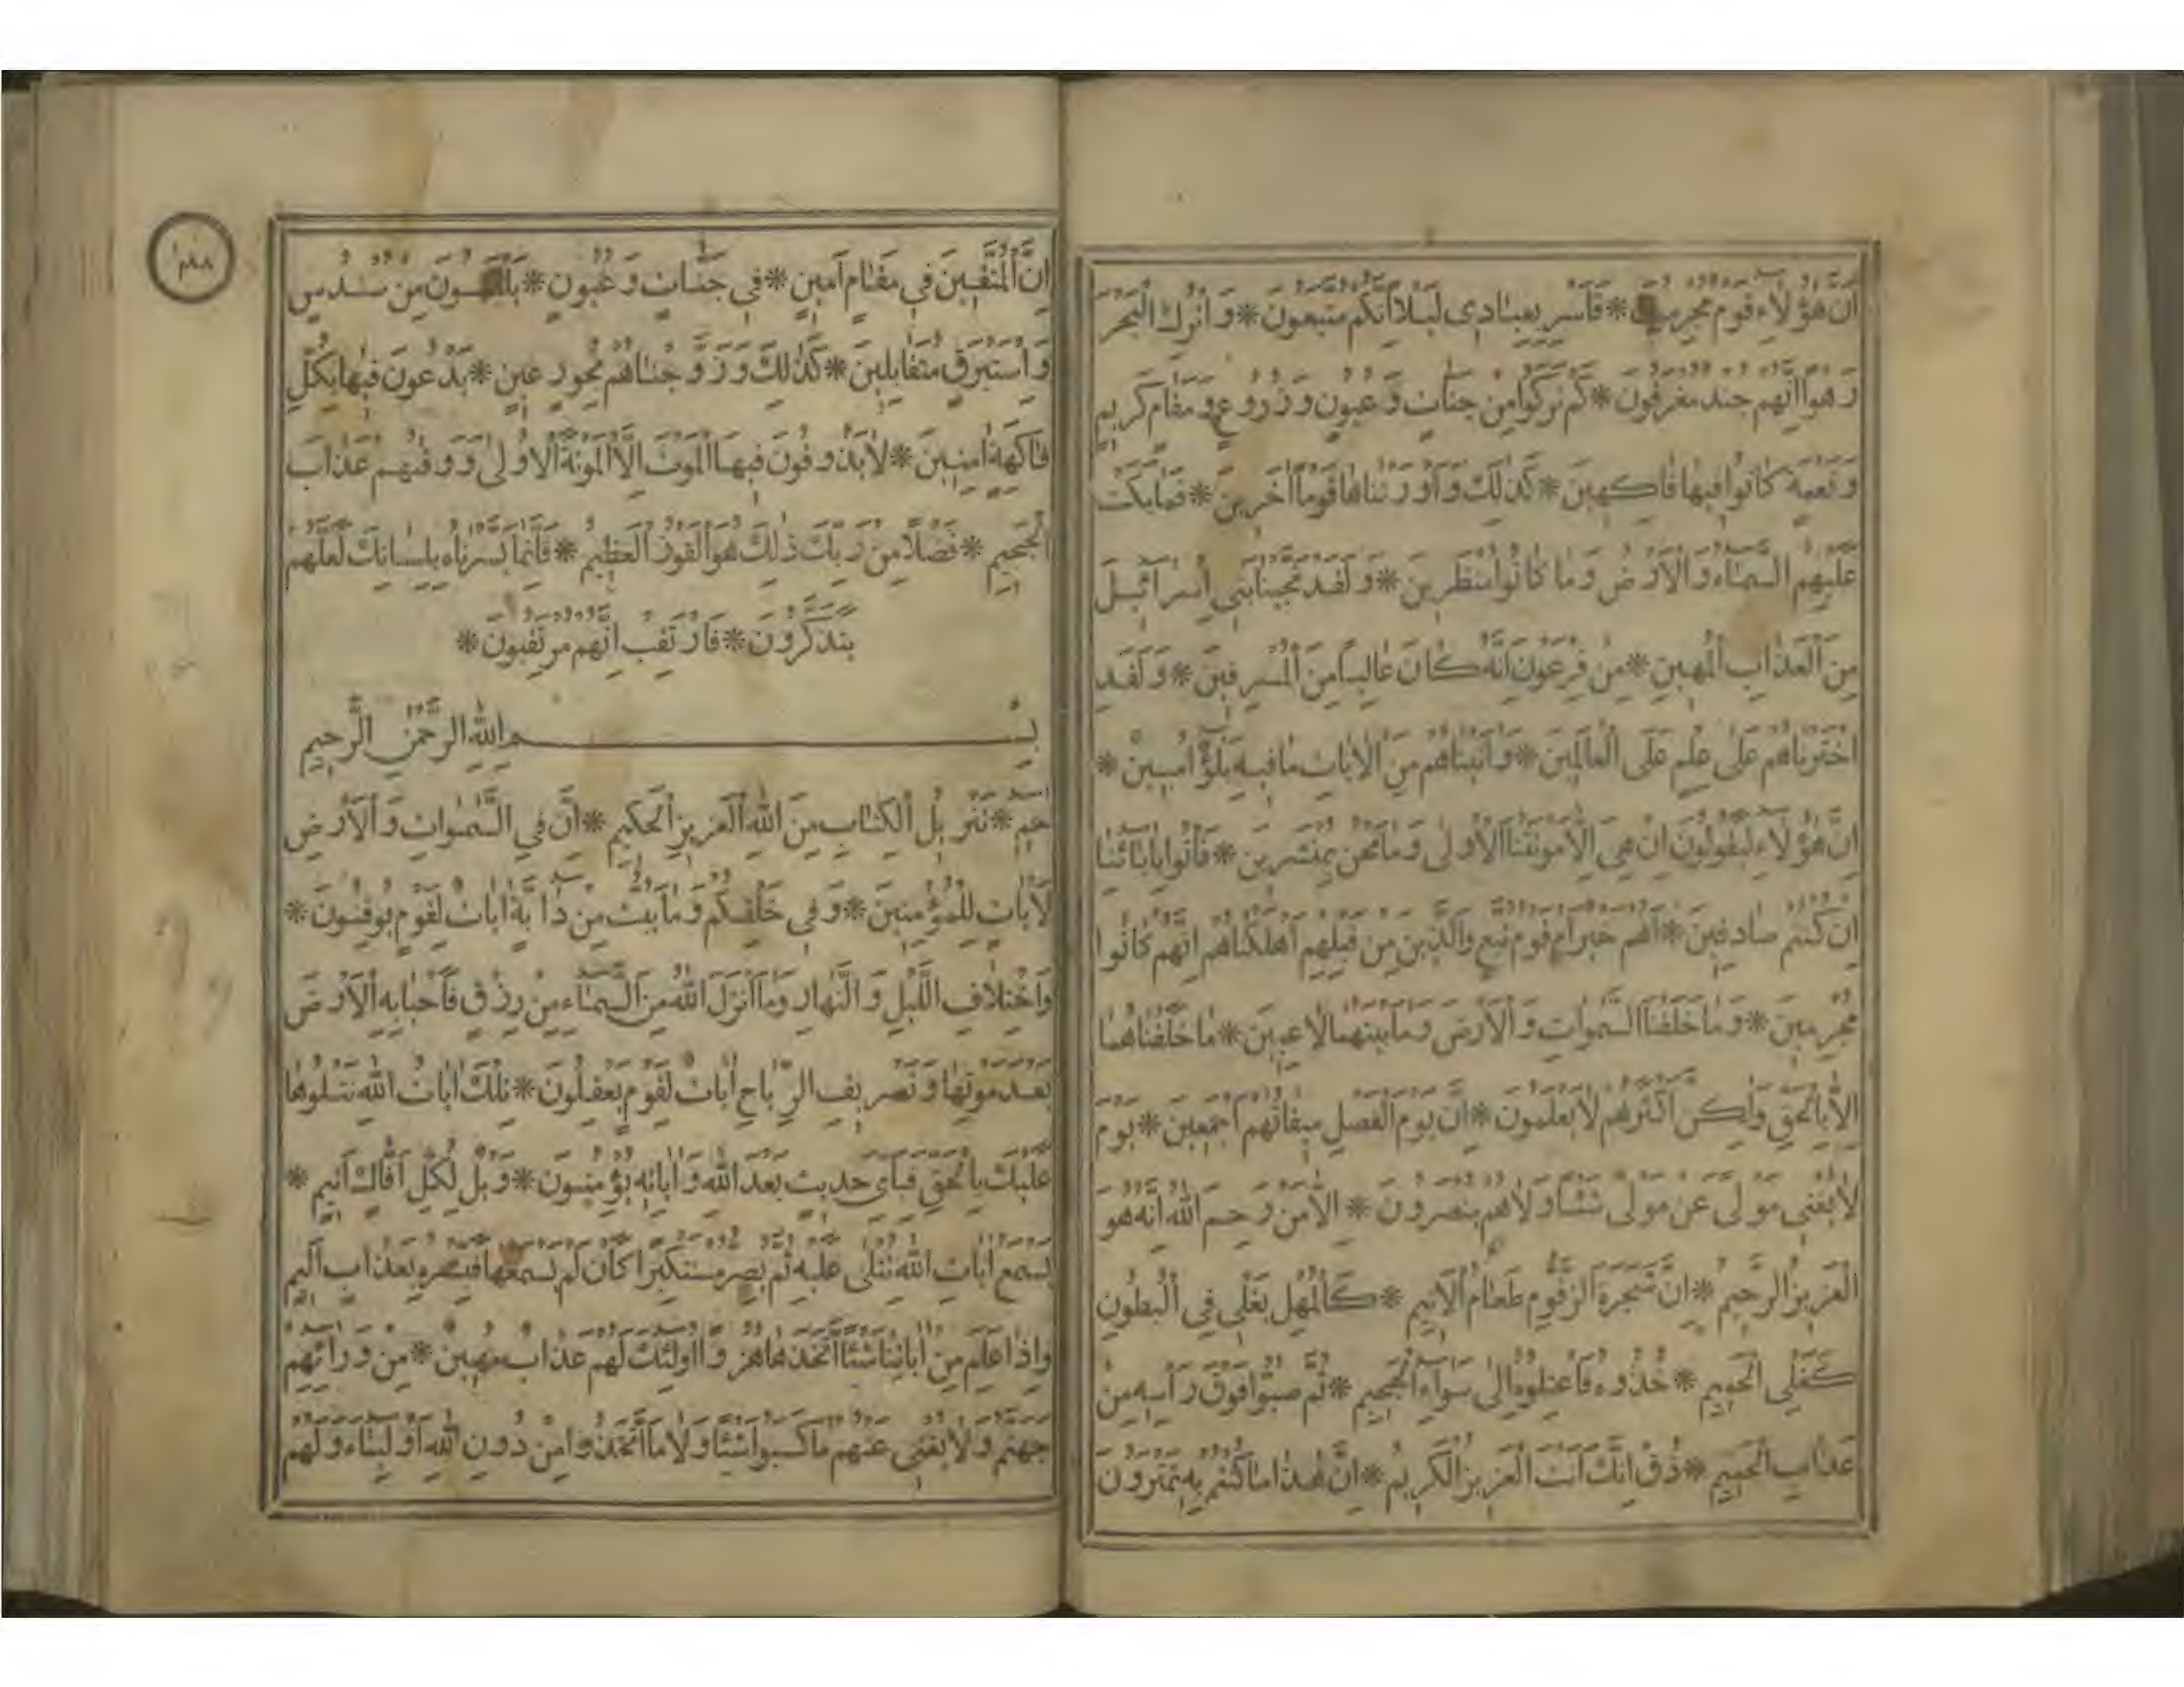 ان هؤلاء قوم مجرمون * فاسر بعبادى ليلا انكم متبعون * واترك البحر
رهوا انهم جند مغرقون * كم تركوا من جنات وعيون وزروع ومقام كريم
ونعمة كانوا فيها فاكهين * كذلك واورثناها قوما اخرين * فما بكت
عليهم السماء والارض وما كانوا منظرين * ولقد نجينا بنى اسرائيل
من العذاب المهين * من فرعون انه كان عاليا من المسرفين * ولقد
اخترناهم على علم على العالمين * واتيناهم من الايات ما فيه بلؤا مبين *
ان هؤلاء ليقولون ان هى الا موتتنا الاولى وما نحن بمنشرين * فاتوا بابائنا
ان كنتم صادقين * اهم خير ام قوم تبع والذين من قبلهم اهلكناهم انهم كانوا
مجرمين * وما خلقنا السموات والارض وما بينهما لاعبين * ما خلقناهما
الا بالحق ولكن اكثرهم لا يعلمون * ان يوم الفصل ميقاتهم اجمعين * يوم
لا يغنى مولى عن مولى شئا ولا هم ينصرون * الا من رحم الله انه هو
العزيز الرحيم * ان شجرة الزقوم طعام الاثيم * كالمهل يغلى فى البطون
كغلى الحميم * خذوه فاعتلوه الى سواء الجحيم * ثم صبوا فوق رأسه من
عذاب الحميم * ذق انك انت العزيز الكريم * ان هذا ما كنتم به تمترون
ان المتقين فى مقام امين * فى جنات وعيون * يلبسون من سندس
واستبرق متقابلين * كذلك وزوجناهم بحور عين * يدعون فيها بكل
فاكهة امنين * لا يذوقون فيها الموت الا الموتة الاولى ووقيهم عذاب
الجحيم * فضلا من ربك ذلك هو الفوز العظيم * فانما يسرناه بلسانك لعلهم
يتذكرون * فارتقب انهم مرتقبون *
بسم الله الرحمن الرحيم
حم * تنزيل الكتاب من الله العزيز الحكيم * ان فى السموات والارض
لايات للمؤمنين * وفى خلقكم وما يبث من دابة ايات لقوم يوقنون *
واختلاف الليل والنهار وما انزل الله من السماء من رزق فاحيا به الارض
بعد موتها وتصريف الرياح ايات لقوم يعقلون * تلك ايات الله نتلوها
عليك بالحق فباى حديث بعد الله واياته يؤمنون * ويل لكل افاك اثيم *
يسمع ايات الله تتلى عليه ثم يصر مستكبرا كان لم يسمعها فبشره بعذاب اليم
واذا علم من اياتنا شئا اتخذها هزوا اولئك لهم عذاب مهين * من ورائهم
جهنم ولا يغنى عنهم ما كسبوا شئا ولا ما اتخذوا من دون الله اولياء ولهم